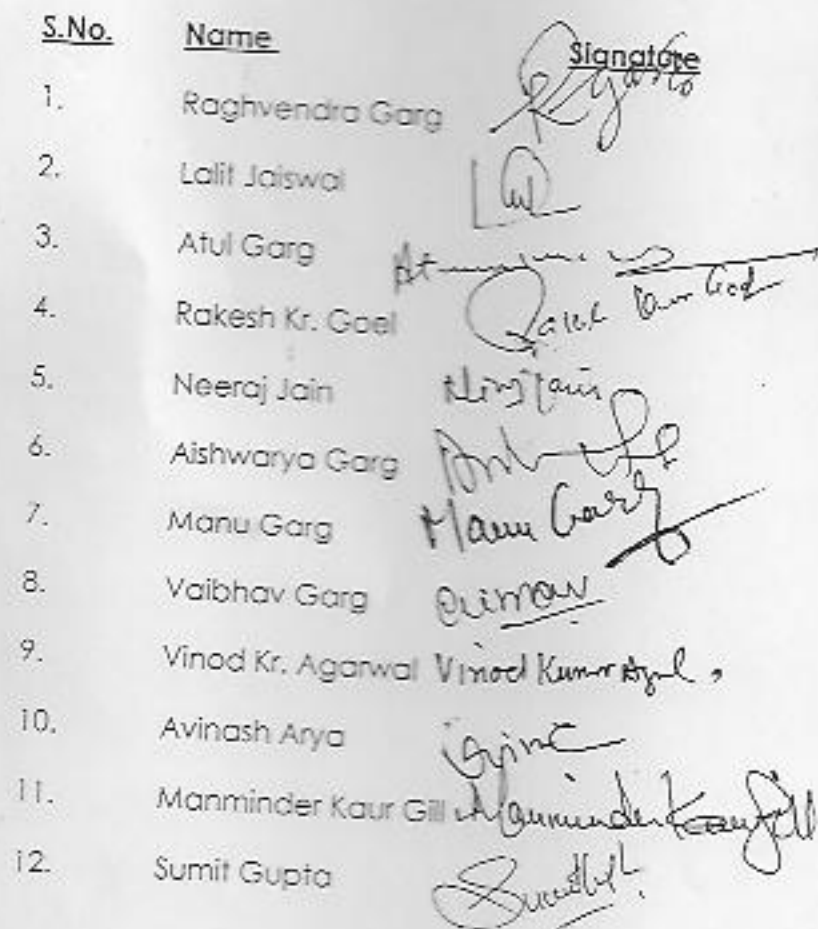 S.No. Name Signature
1. Raghvendra Garg
2. Lalit Jaiswal
3. Atul Garg
4. Rakesh Kr. Goel
5. Neeraj Jain
6. Aishwarya Garg
7. Manu Garg Manu Garg
8. Vaibhav Garg
9. Vinod Kr. Agarwal Vinod Kumar
10. Avinash Arya
11. Manminder Kaur Gill Manminder Kaur Gill
12. Sumit Gupta